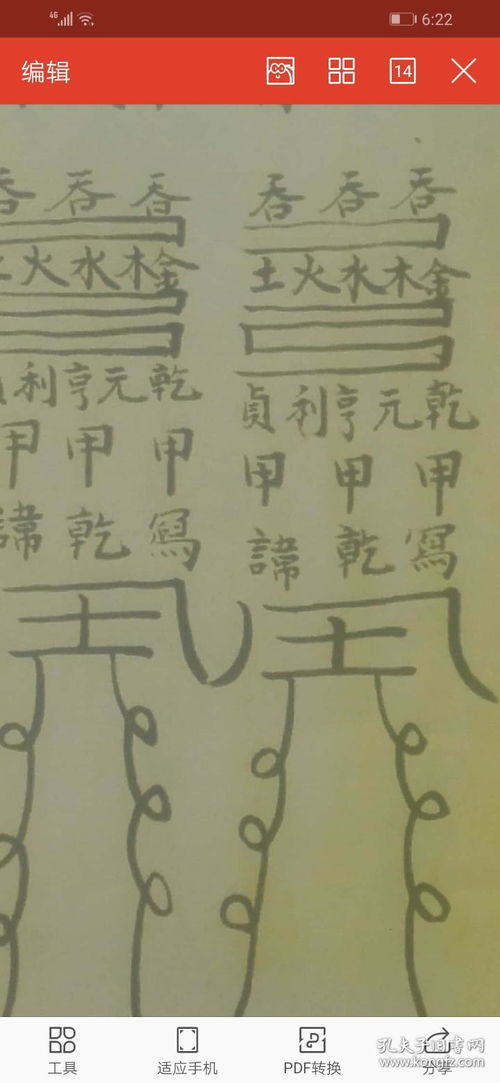 4G 6:22
编辑 14
吞吞吞 吞吞吞
火水木金 土火水木金
利亨元乾 貞利亨元乾
甲甲甲 甲甲甲
諱乾寫 諱乾寫
工具 适应手机 PDF转换 分享
孔夫子旧书网
www.kongfz.com